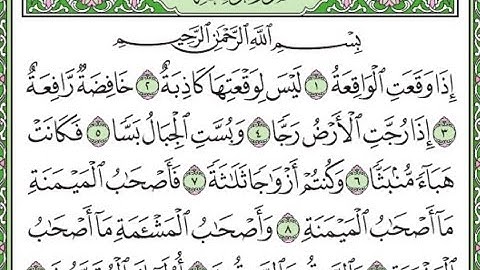 بِسْمِ اللَّهِ الرَّحْمَٰنِ الرَّحِيمِ
إِذَا وَقَعَتِ الْوَاقِعَةُ ١ لَيْسَ لِوَقْعَتِهَا كَاذِبَةٌ ٢ خَافِضَةٌ رَّافِعَةٌ
٣ إِذَا رُجَّتِ الْأَرْضُ رَجًّا ٤ وَبُسَّتِ الْجِبَالُ بَسًّا ٥ فَكَانَتْ
هَبَاءً مُّنبَثًّا ٦ وَكُنتُمْ أَزْوَاجًا ثَلَاثَةً ٧ فَأَصْحَابُ الْمَيْمَنَةِ
مَا أَصْحَابُ الْمَيْمَنَةِ ٨ وَأَصْحَابُ الْمَشْأَمَةِ مَا أَصْحَابُ